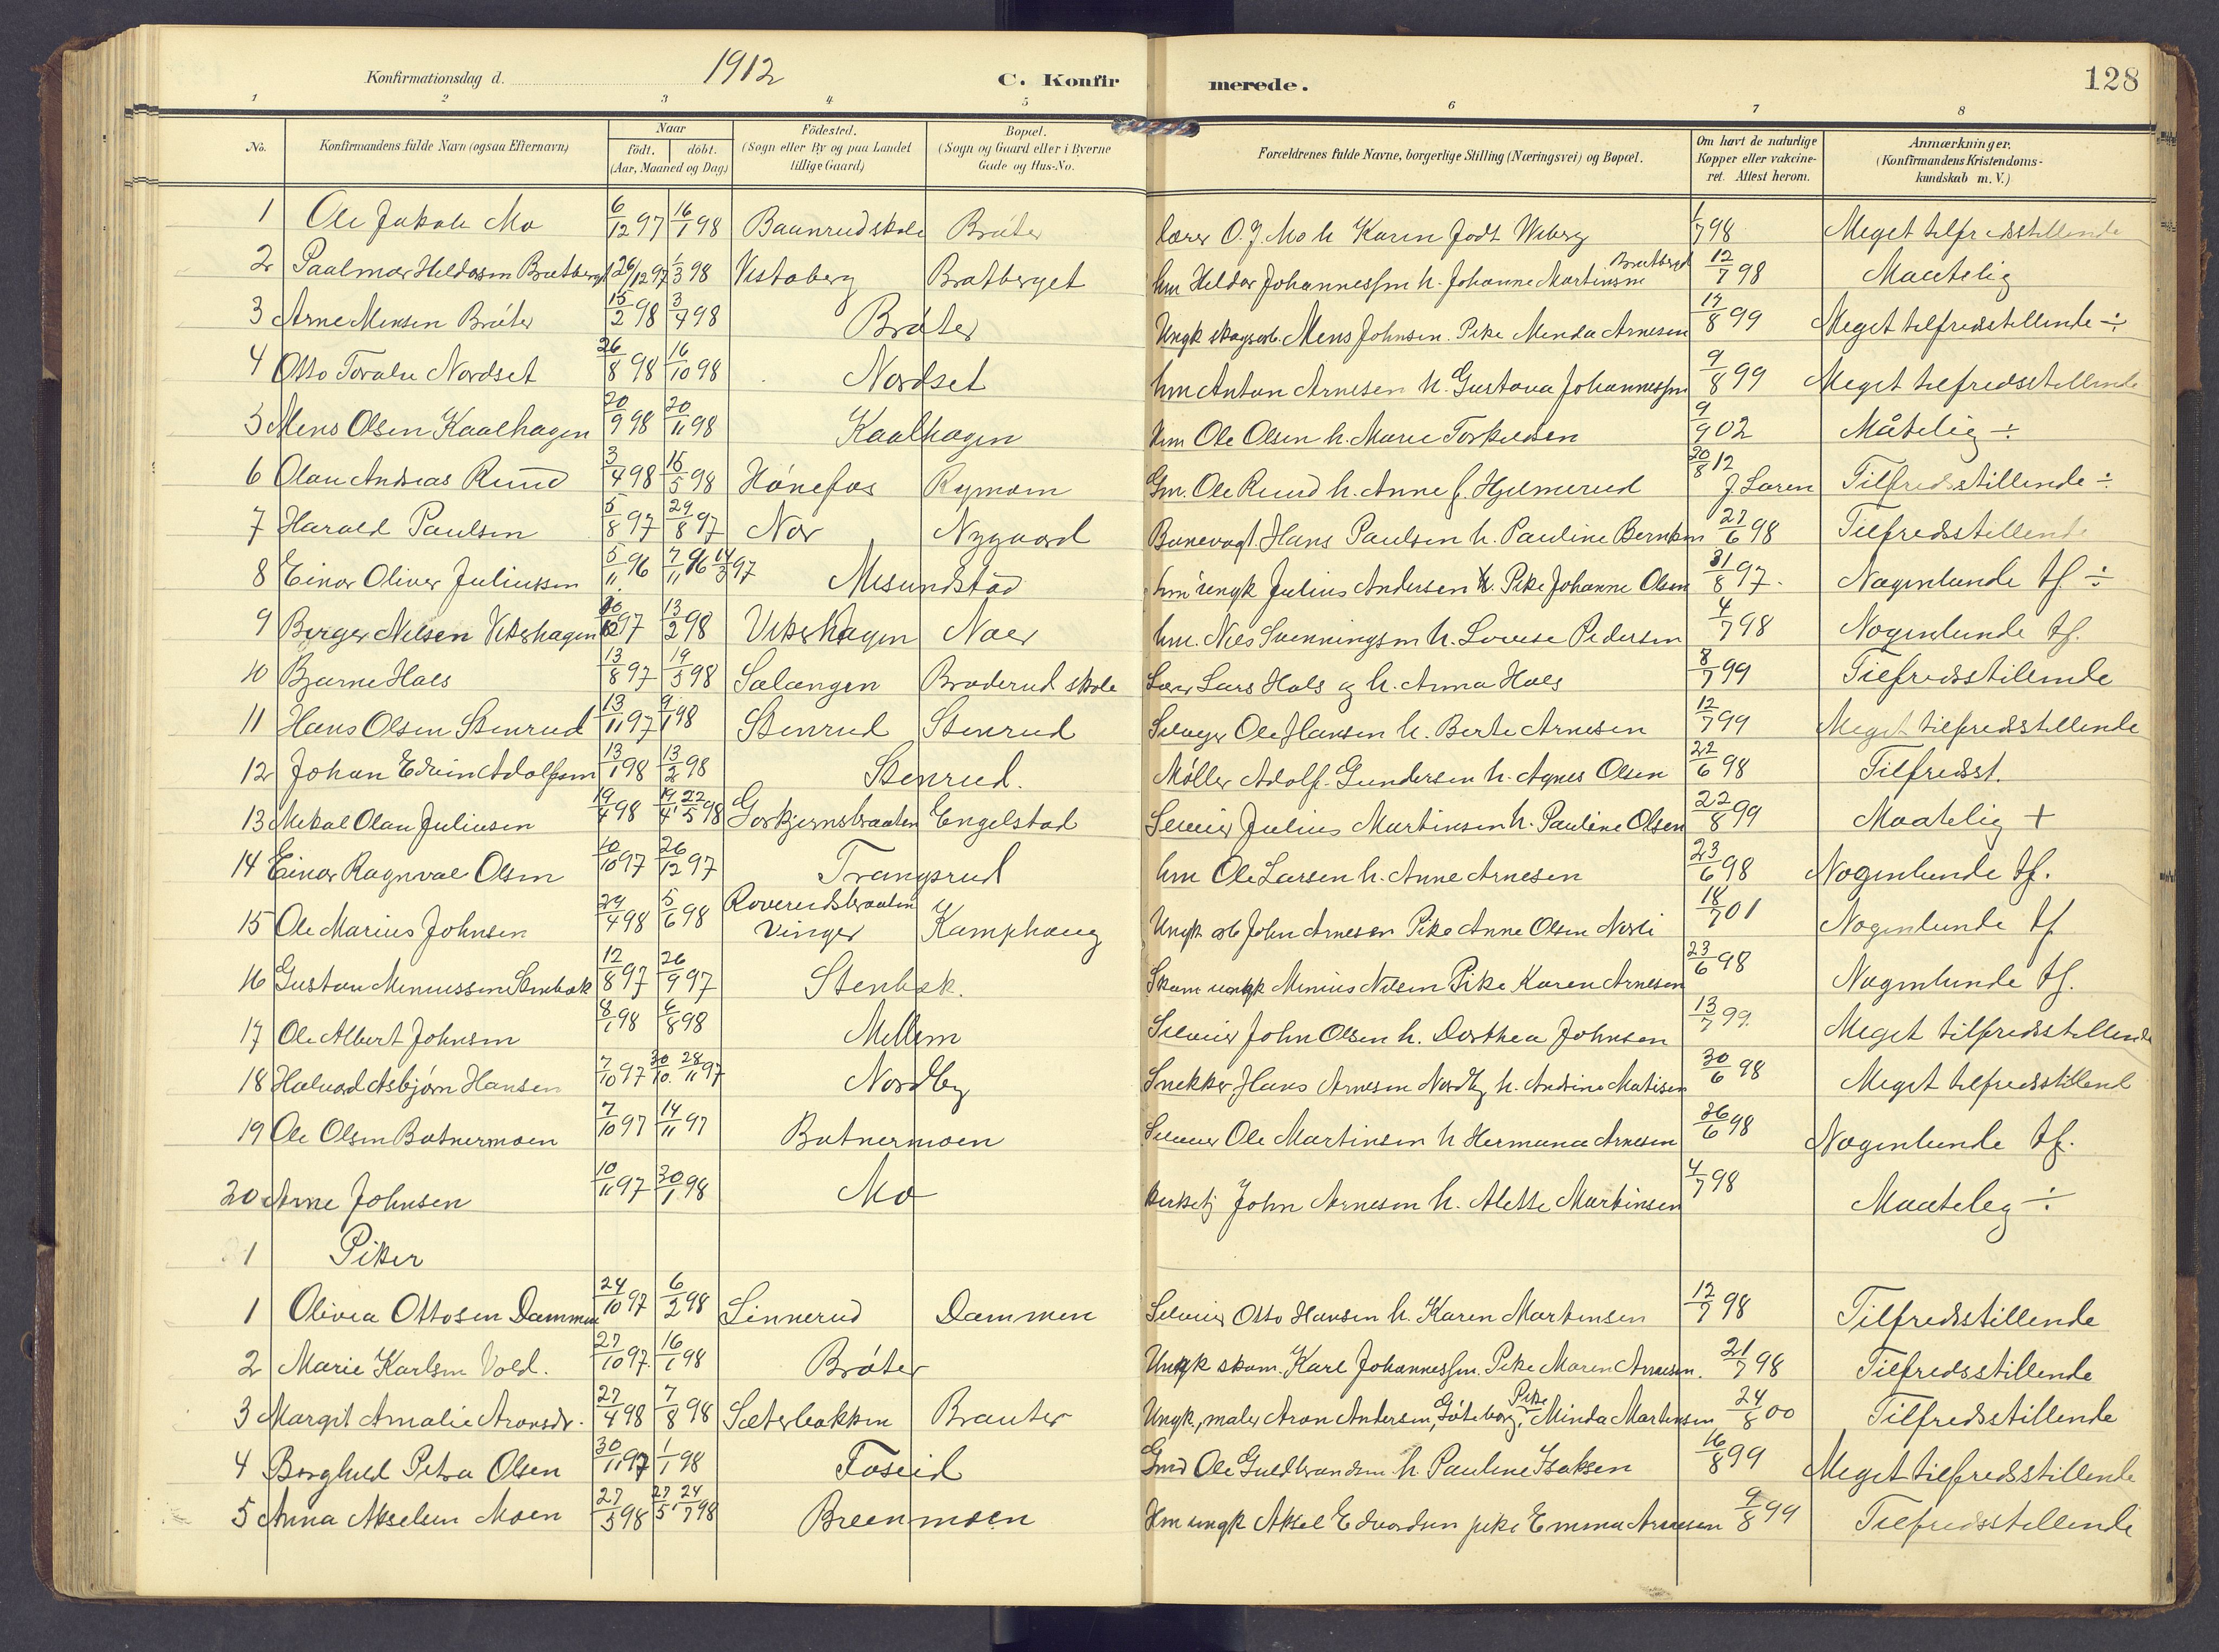 Konfirmationsdag d. 1912 C. Konfirmerede. 128
1 2 3 4 5 6 7 8
No. Konfirmandens fulde Navn (ogsaa Efternavn) Naar födt. döbt. (Aar, Maaned og Dag) Födested. (Sogn eller By og paa Landet tillige Gaard) Bopæl. (Sogn og Gaard eller i Byerne Gade og Hus-No. Forældrenes fulde Navne, borgerlige Stilling (Næringsvei) og Bopæl. Om havt de naturlige Kopper eller vakcineret. Attest herom. Anmærkninger. (Konfirmandens Kristendomskundskab m. V.)
1 Ole Jakob Mo 6/12 97 16/1 98 Baanrud skole Bråter lærer O. J. Mo h Karen født Wiberg 1/7 98 Meget tilfredsstillende
2 Paalmar Heldorsen Bratberget 26/12 97 1/3 98 Vestaberg Bratberget hm Heldor Johannessen h. Johanne Martinsen Bratberget 12/7 98 Maatelig
3 Arne Mensen Bråter 15/2 98 3/4 98 Bråter Ungk skogsarb. Mens Johnsen. Pike Menda Arnesen 14/8 99 Meget tilfredsstillende ÷
4 Otto Toralv Nordset 26/8 98 16/10 98 Nordset hm Anton Arnesen h. Gustava Johannessen 9/8 99 Meget tilfredsstillende
5 Mens Olsen Kaalhagen 20/9 98 20/11 98 Kaalhagen hm Ole Olsen h. Marie Torkildsen 9/9 02 Måtelig ÷
6 Olav Andreas Ruud 3/4 98 15/5 98 Hönefos Rymoen Gm. Ole Ruud h. Anne f. Hjelmerud 20/8 12 J Laren Tilfredsstillende ÷
7 Harald Paulsen 5/8 97 29/8 97 Nor Nygaard Banevagt. Hans Paulsen h. Pauline Berntsen 27/6 98 Tilfredsstillende
8 Einar Oliver Juliussen 5/11 96 7/11 96 14/3 97 Mesundstad hm ungk Julius Andersen Pike Johanne Olsen 31/8 97. Nogenlunde tf. ÷
9 Birger Nilsen Vikerhagen 97 13/2 98 Vikerhagen Naer hm. Nils Svenningsen h. Lovise Pedersen 4/7 98 Nogenlunde tf.
10 Bjarne Hals 13/8 97 19/5 98 Salangen Broderud skole Lærer Lars Hals og h. Anna Hals 8/7 99 Tilfredsstillende
11 Hans Olsen Stenrud 13/11 97 9/1 98 Stenrud Stenrud Selveger Ole Hansen h. Berte Arnesen 12/7 99 Meget tilfredsstillende
12 Johan Edvin Adolfsen 13/1 98 13/2 98 Stenrud. Møller Adolf Gundersen h. Agnes Olsen 22/6 98 Tilfredsst.
13 Mikal Olau Juliusen 19/4 98 19/4 22/5 98 Gorkjernsbraaten Engelstad Seleier Julius Martinsen h. Pauline Olsen 22/8 99 Maatelig +
14 Einar Ragnval Olsen 10/10 97 26/12 97 Trangsrud hm Ole Larsen h. Anne Arnesen 23/6 98 Nogenlunde tf.
15 Ole Marius Johnsen 29/4 98 5/6 98 Roverudsbraaten Vinger Kamphaug Ungk arb John Arnesen Pike Anne Olsen Norli 18/7 01 Nogenlunde tf
16 Gustav Meniussen Stenbæk 12/8 97 26/9 97 Stenbæk. Skom ungk Menius Nilsen Pike Karen Arnesen 23/6 98 Nogenlunde tf.
17 Ole Albert Johnsen 8/1 98 6/8 98 Mellem Seleier John Olsen h. Dorthea Johnsen 13/7 99. Meget tilfredsstillende
18 Halvard Asbjørn Hansen 7/10 97 30/10. 28/11 97 Nordby Snekker Hans Arnesen Nordby h. Andrine Matisen 30/6 98 Meget tilfredsstillend
19 Ole Olsen Botnermoen 7/10 97 14/11 97 Botnermoen Seleier Ole Martinsen h Hermana Arnesen 26/6 98 Nogenlunde tf.
20 Arne Johnsen 10/11 97 30/1 98 Mo kirketj John Arnesen h. Alette Martinsen 4/7 98 Maateleg ÷
1 Piker
1 Olivia Ottosen Dammen 24/10 97 6/2 98 Linnerud Dammen Seleier Otto Hansen h. Karen Martinsen 12/7 98 Tilfredsstillende
2 Marie Karlsen Vold. 27/10 97. 16/1 98 Bråter Ungk skom. Karl Johannessen. Pike Maren Arnesen. 21/7 98 Tilfredsstillende
3 Margit Amalie Aronsdr. 27/4 98 7/8 98 Sæterbakken Brauter Ungk, maler Aron Andersen, Göteborg, Pike Minda Martinsen 24/8 00 Tilfredsstillende
4 Borghild Petra Olsen 30/11 97 1/1 98 Foseid Gmd Ole Guldbrandsen h. Pauline Isaksen 16/8 99 Meget tilfredsstillende
5 Anna Akselsen Moen 27/3 98 27/5 24/7 98 Breenmoen Hm ungk Aksel Edvardsen pike Emma Arnesen 9/8 99 Tilfredsstillende